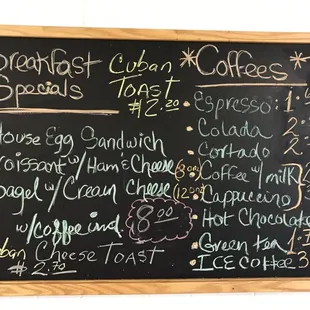 Breakfast
Specials
House Egg Sandwich
Croissant w/ Ham & Cheese
Bagel w/ Cream Cheese
w/ coffee ind.
8.00
Cuban Cheese TOAST
$2.70
Cuban
TOAST
$2.20
*Coffees*
Espresso • 1.
• Colada 2.
• Cortado 2.
• Coffee w/ milk
• Cappuccino
• Hot Chocolate
• Green tea 1.
• ICE COFFEE 3
(12oz)